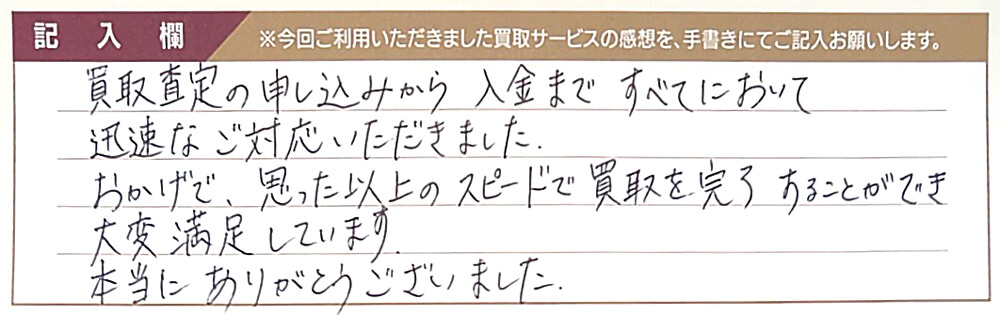 記入欄
※今回ご利用いただきました買取サービスの感想を、手書きにてご記入お願いします。
買取査定の申し込みから 入金まで すべてにおいて
迅速な ご対応いただきました.
おかげで、思った以上のスピードで買取を完了 することができ
大変満足しています.
本当に ありがとうございました.